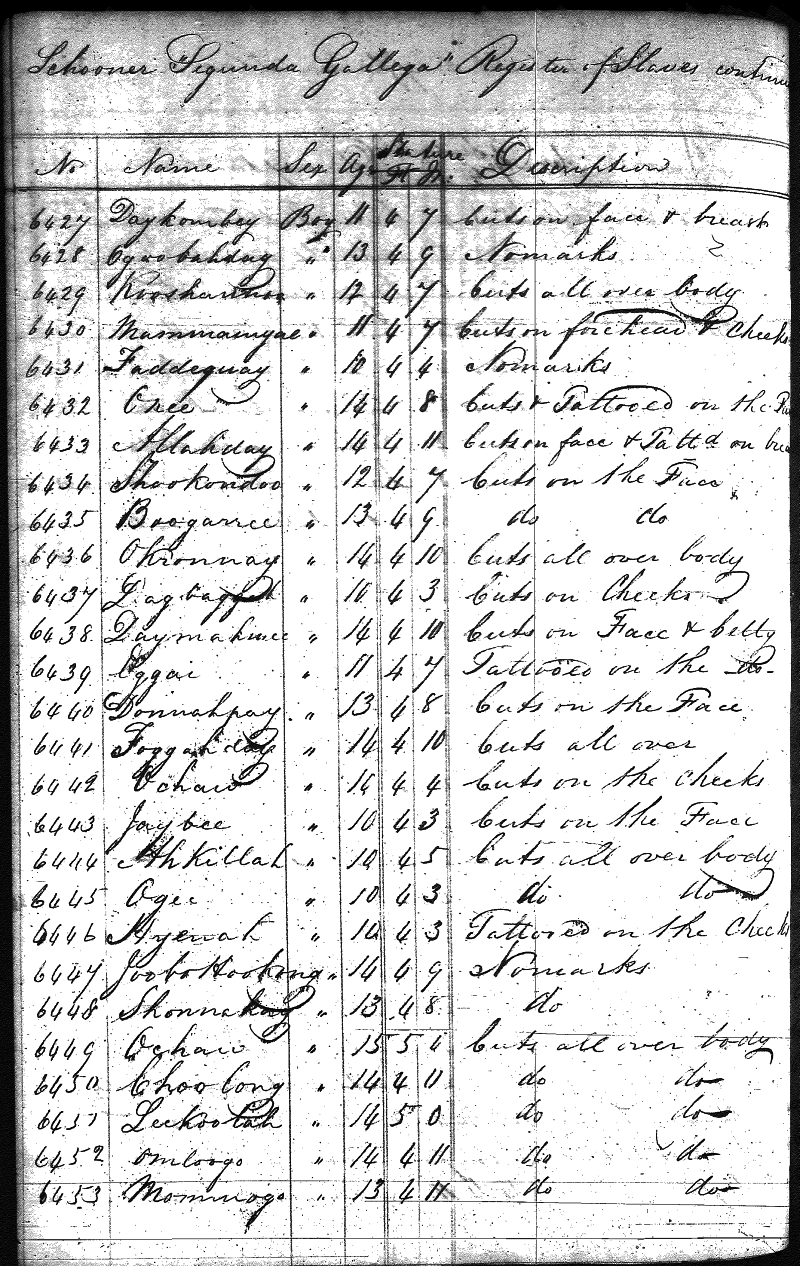 Schooner "Segunda Gallega" Register of Slaves continu
No Name Sex Age Stature Ft In. Description
6427 Daykombey Boy 11 4 7 Cuts on face & breast
6428 Ogwobahday " 13 4 9 No marks
6429 " 12 4 7 Cuts all over body
6430 Mammamgae " 11 4 7 Cuts on forehead & Cheeks
6431 Faddeguay " 10 4 4 No marks
6432 Oree " 14 4 8 Cuts & Tattooed on the
6433 Allahday " 14 4 11 Cuts on face & Tattd on brea
6434 Shookondoo " 12 4 7 Cuts on the Face
6435 Boogarree " 13 4 9 do do
6436 Okronnay " 14 4 10 Cuts all over body
6437 " 10 4 3 Cuts on Cheeks
6438 Daymahmee " 14 4 10 Cuts on Face & belly
6439 Oggai " 11 4 7 Tattooed on the do
6440 Donnahpay " 13 4 8 Cuts on the Face
6441 Foggahday " 14 4 10 Cuts all over
6442 Ochaw " 10 4 4 Cuts on the Cheeks
6443 Jaybee " 10 4 3 Cuts on the Face
6444 Ahkillah " 10 4 5 Cuts all over body
6445 Ogee " 10 4 3 do do
6446 Ayenah " 10 4 3 Tattooed on the Cheek
6447 " 14 4 9 No marks
6448 Shonnakay " 13 4 8 do
6449 Ochaw " 15 5 " Cuts all over body
6450 Choolong " 14 4 11 do do
6451 Leekootah " 14 5 0 do do
6452 Omloogo " 14 4 11 do do
6453 Mommogo " 13 4 11 do do